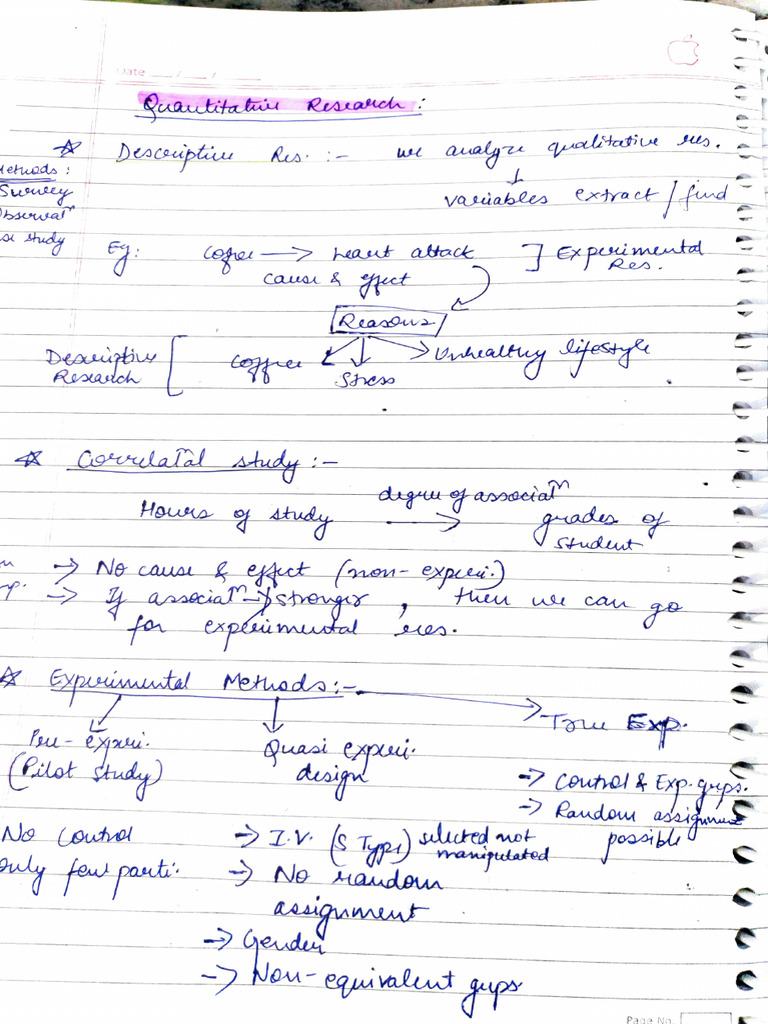 Date
Quantitative Research :
☆ Descriptive Res. :- we analyze qualitative res.
↓
variables extract / find
Methods :
Survey
Observatⁿ
study
Eg: Coffee → heart attack ] Experimental Res.
cause & effect
Reasons
Descriptive Research [ Coffee Stress Unhealthy lifestyle
☆ Correlatⁿal study :-
Hours of study → grades of student
degree of associatⁿ
→ No cause & effect (non-experi.)
→ If associatⁿ → stronger, then we can go
for experimental res.
☆ Experimental Methods :-
Pre-experi.
(Pilot study)
No control
only few parti.
Quasi experi.
design
→ I.V. (S Type) selected not manipulated
→ No random
assignment
→ Gender
→ Non-equivalent grps
True Exp.
→ Control & Exp. grps.
→ Random assignment
possible
Page No.